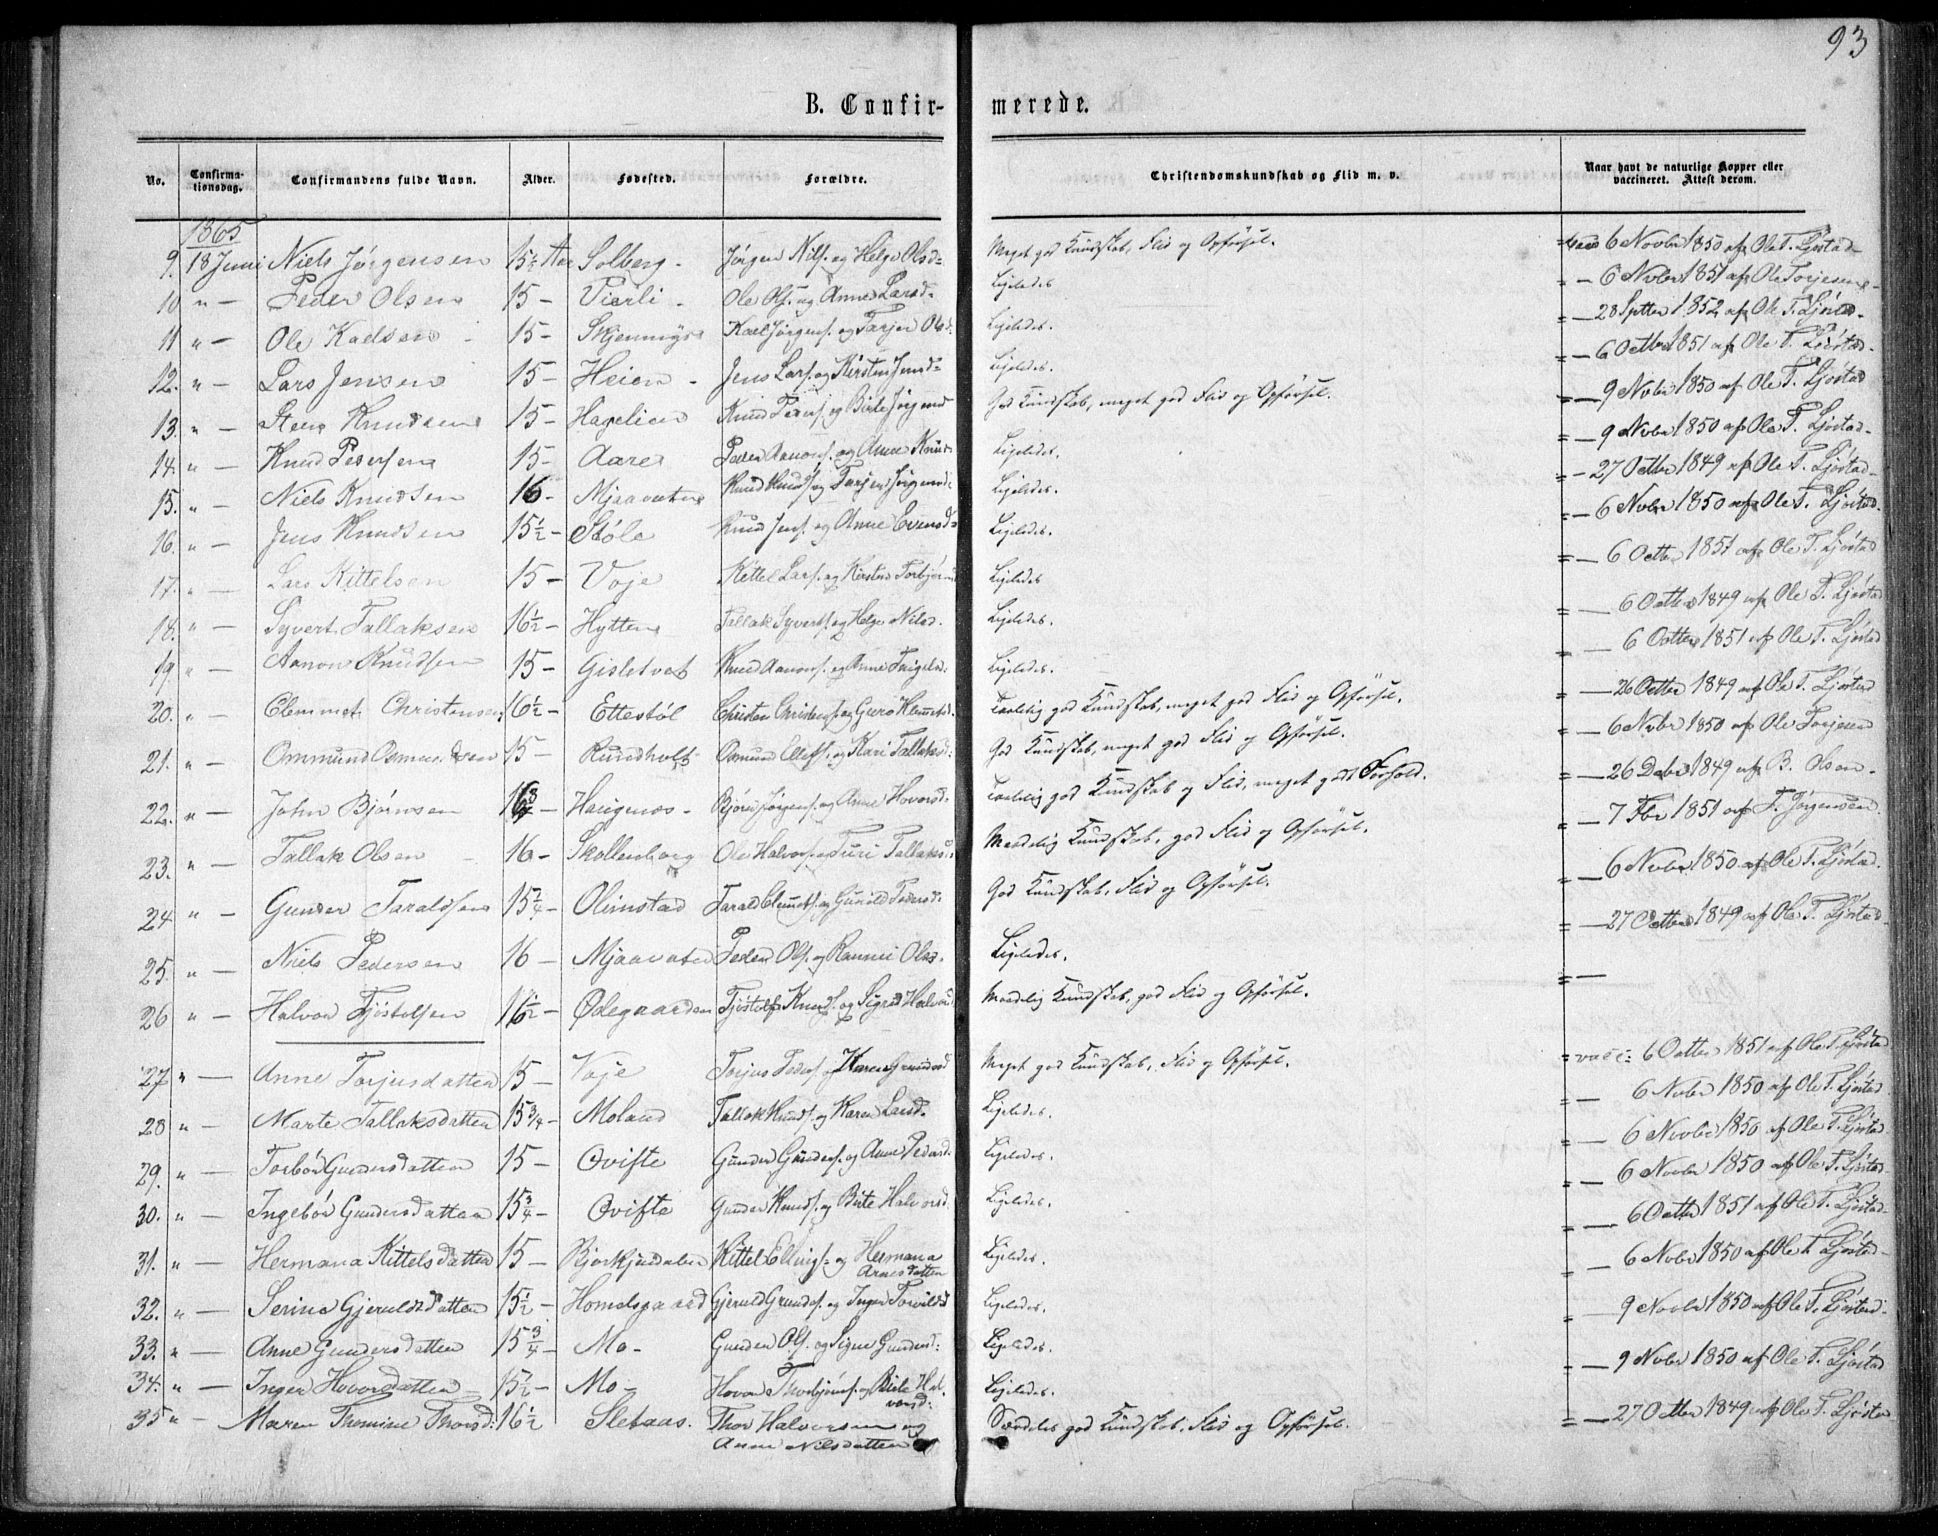 93
B. Confirmerede.
No. Confirmationsdag. Confirmandens fulde Navn. Alder. Fødested. Forældre. Christendomskundskab og Flid m. v. Naar havt de naturlige Kopper eller vaccineret. Attest derom.
1865
9. 18 Juni Niels Jørgensen 15½ Aar Solberg - Jørgen Nils. og Helge Olsd= Meget god Kundskab, Flid og Opførsel. = vacc 6 Novbr 1850 af Ole T. Ljøstad-
10 " — Peder Olsen 15 - Vierli - Ole Ols. og Anne Larsd- Ligeledes = — 6 Nvbr 1851 af Ole Torjesen-
11 " — Ole Kaelsen 15 - Skjennmyr Kael Jørgens. og Tarjer Olsd. Ligeledes. = — 28 Septbr 1852 af Ole T. Ljøstad-
12. " — Lars Jensen 15 - Heien - Jens Lars. og Kirsten Jensd= Ligeledes. = — 6 Octbr 1851 af Ole T. Ljøstad-
13. " — Sten Knudsen 15 - Hagelien Knud Peders. og Birte Jørgensd God Kundskab, meget god Flid og Opførsel. = — 9 Nvbr 1850 af Ole T. Ljøstad
14. " — Knud Pedersen 15 - Aare Peder Aanons. og Anne Knuds- Ligeledes. = — 9 Nvbr 1850 af Ole T. Ljøstad-
15. " — Niels Knudsen 16 - Mjaavatn Knud Knuds. og Tarjer Jørgensd= Ligeledes. = — 27 Octbr 1849 af Ole T. Ljøstad-
16. " — Jens Knudsen 15½ - Støle Knud Jens. og Anne Evensd= Ligeledes. = — 6 Nvbr 1850 af Ole T. Ljøstad.
17. " — Lars Kittelsen 15 - Voje Kittel Lars. og Kirsten Torbjørnsd Ligeledes = — 6 Octbr 1851 af Ole T. Ljøstad
18. " — Syvert Tallaksen 16½ - Hytten Tallak Syverts. og Helge Nilsd. Ligeledes. = — 6 Octbr 1849 af Ole T. Ljøstad
19 " — Aanon Knudsen 15 - Gisletvet Knud Aanons. og Anne Taigelsd. Ligeledes. = — 6 Octbr 1851 af Ole T. Ljøstad
20. " — Clemmet Christensen 16½ - Ettestöl Christen Christens. og Guro Klemetsd. Taalelig god Kundskab, meget god Flid og Opførsel. = — 26 Octbr 1849 af Ole T. Ljøstad
21. " — Ommund Osmundsen 15 - Rundholt Osmund Ellefs. og Kari Tallaksd: God Kundskab, meget god Flid og Opførsel. = — 6 Nvbr 1850 af Ole Torjesen
22. " — John Bjørnsen 16¾ - Haugenæs - Bjørn Jørgens. og Anne Hovorsd Taalelig god Kundskab og Flid, meget godt Forhold. = — 26 Debr 1849 af B. Olsen -
23. " — Tallak Olsen - 16 - Skollenborg Ole Halvors. og Turi Tallaksd: Maadelig Kundskab, god Flid og Opførsel. = — 7 Fbr 1851 af T. Jørgensen
24 " — Gunder Taraldsen 15¾ - Olimstad Tarald Clemets. og Gunild Pedersd. God Kundskab, Flid og Opførsel. = — 6 Nvbr 1850 af Ole T. Ljøstad.
25 " — Niels Pedersen 16 - Mjaavatn Peder Ols. og Rannei Olsd. Ligeledes. = — 27 Octbr 1849 af Ole T. Ljøstad-
26 " — Halvor Tjøstolsen 16½ - Ødegaarden Tjøstolf Knuds. og Sigrid Halvorsd Maadelig Kundskab, god Flid og Opførsel. = —
27 " — Anne Torjusdatter 15 - Voje Torjus Peders. og Karen Gundersd Meget god Kundskab, Flid og Opførsel. = vacc: 6 Octbr 1851 af Ole T. Ljøstad
28 " — Marte Tallaksdatter 15¾ - Moland Tallak Knuds. og Karen Larsd. Ligeledes. = — 6 Nvbr 1850 af Ole T. Ljøstad
29. " — Torbør Gundersdatter 15 - Ovifte Gunder Gunders. og Anne Pedersd. Ligeledes. = — 6 Novbr 1850 af Ole T. Ljøstad.
30. " — Ingebør Gundersdatter 15¾ - Ovifte Gunder Knuds. og Birte Halvorsd. Ligeledes. = — 6 Novbr 1850 af Ole T. Ljøstad-
31. " — Hermana Kittelsdatter 15 - Bjorkjendalen Kittel Ellings. og Hermana Arnesdatter Ligeledes. = — 6 Octbr 1851 af Ole T. Ljøstad-
32. " — Serine Gjeruldsdatter 15½ - Homdsgaard Gjeruld Gunders. og Inger Torvildsd Ligeledes. = — 6 Nvbr 1850 af Ole T. Ljøstad-
33. " — Anne Gundersdatter 15¾ - Mo - Gunder Ols. og Signe Gundersd: Ligeledes. = — 9 Novbr 1850 af Ole T. Ljøstad-
34. " — Inger Hovorsdatter - 15½ - Mo - Hovor Thorbjørns. og Birte Halvorsd: Ligeledes. = — 9 Nvbr 1850 af Ole T. Ljøstad
35 " — Maren Thomine Thorsd: 16½ Sletaas. Thor Halvorsen og Anne Nilsdatter Særdeles god Kundskab, Flid og Opførsel. = — 27 Octbr 1849 af Ole T. Ljøstad